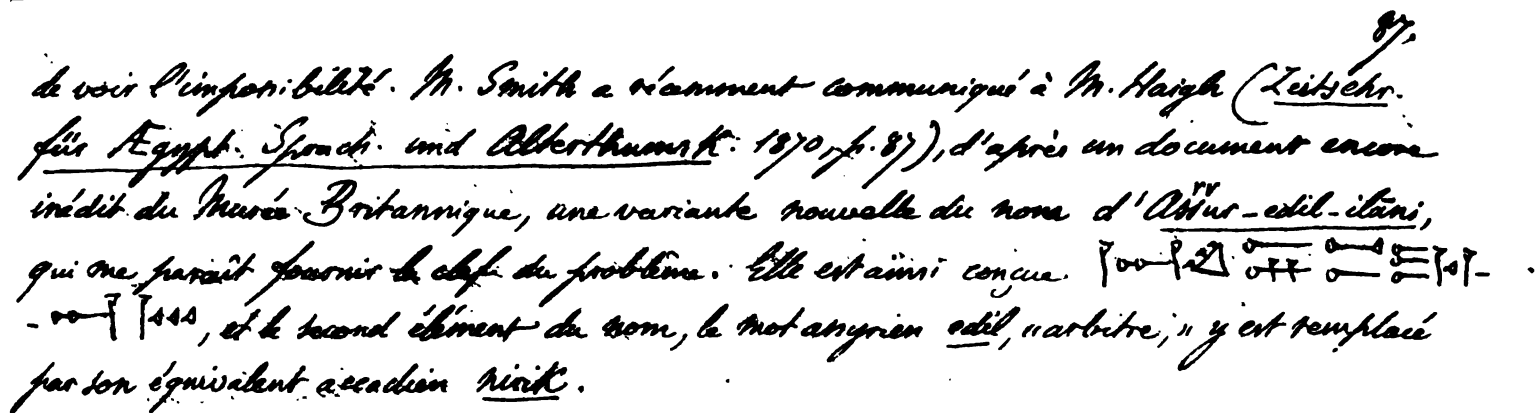 87.
de voir l'impossibilité. M. Smith a récemment communiqué à M. Haigh (Zeitschr.
für Ægypt. Sprach. und Alterthumsk. 1870, p. 87), d'après un document encore
inédit du Musée Britannique, une variante nouvelle du nom d'Assur-edil-ilâni,
qui me paraît fournir la clef du problème. Elle est ainsi conçue
, et le second élément du nom, le mot assyrien edil, "arbitre," y est remplacé
par son équivalent accadien nirik.